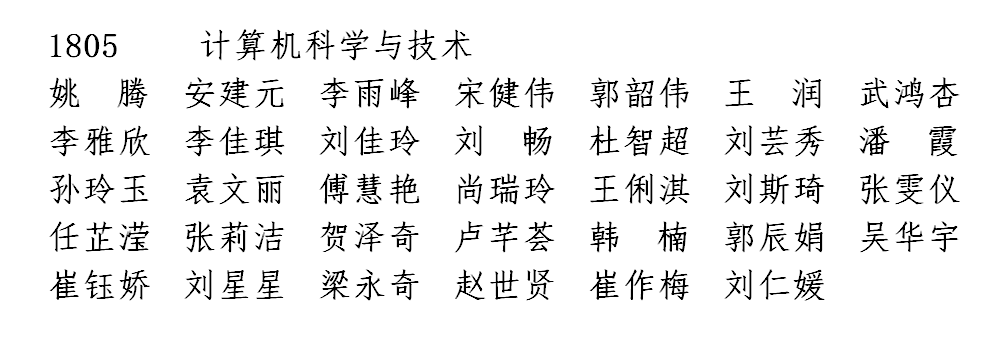 1805 计算机科学与技术
姚 腾 安建元 李雨峰 宋健伟 郭韶伟 王 润 武鸿杏
李雅欣 李佳琪 刘佳玲 刘 畅 杜智超 刘芸秀 潘 霞
孙玲玉 袁文丽 傅慧艳 尚瑞玲 王俐淇 刘斯琦 张雯仪
任芷滢 张莉洁 贺泽奇 卢芊荟 韩 楠 郭辰娟 吴华宇
崔钰娇 刘星星 梁永奇 赵世贤 崔作梅 刘仁媛